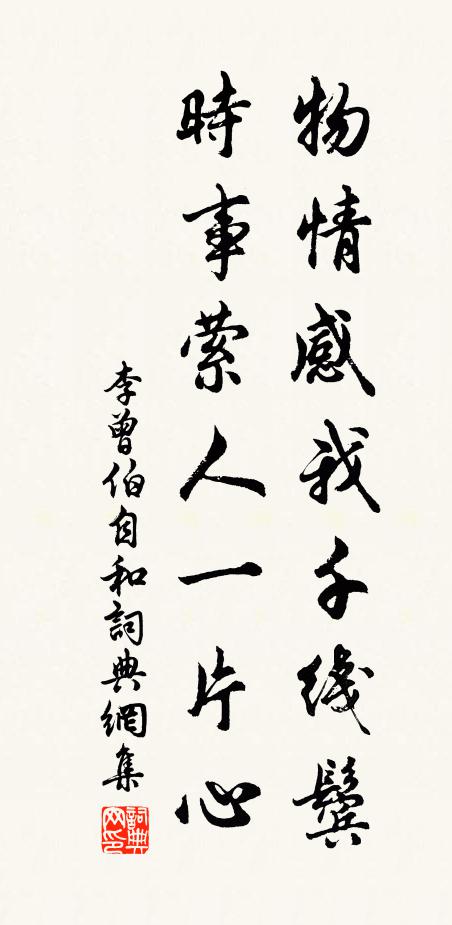 物情感我千綫鬓
時事萦人一片心
李曾伯自和詞典網集
詞典网印